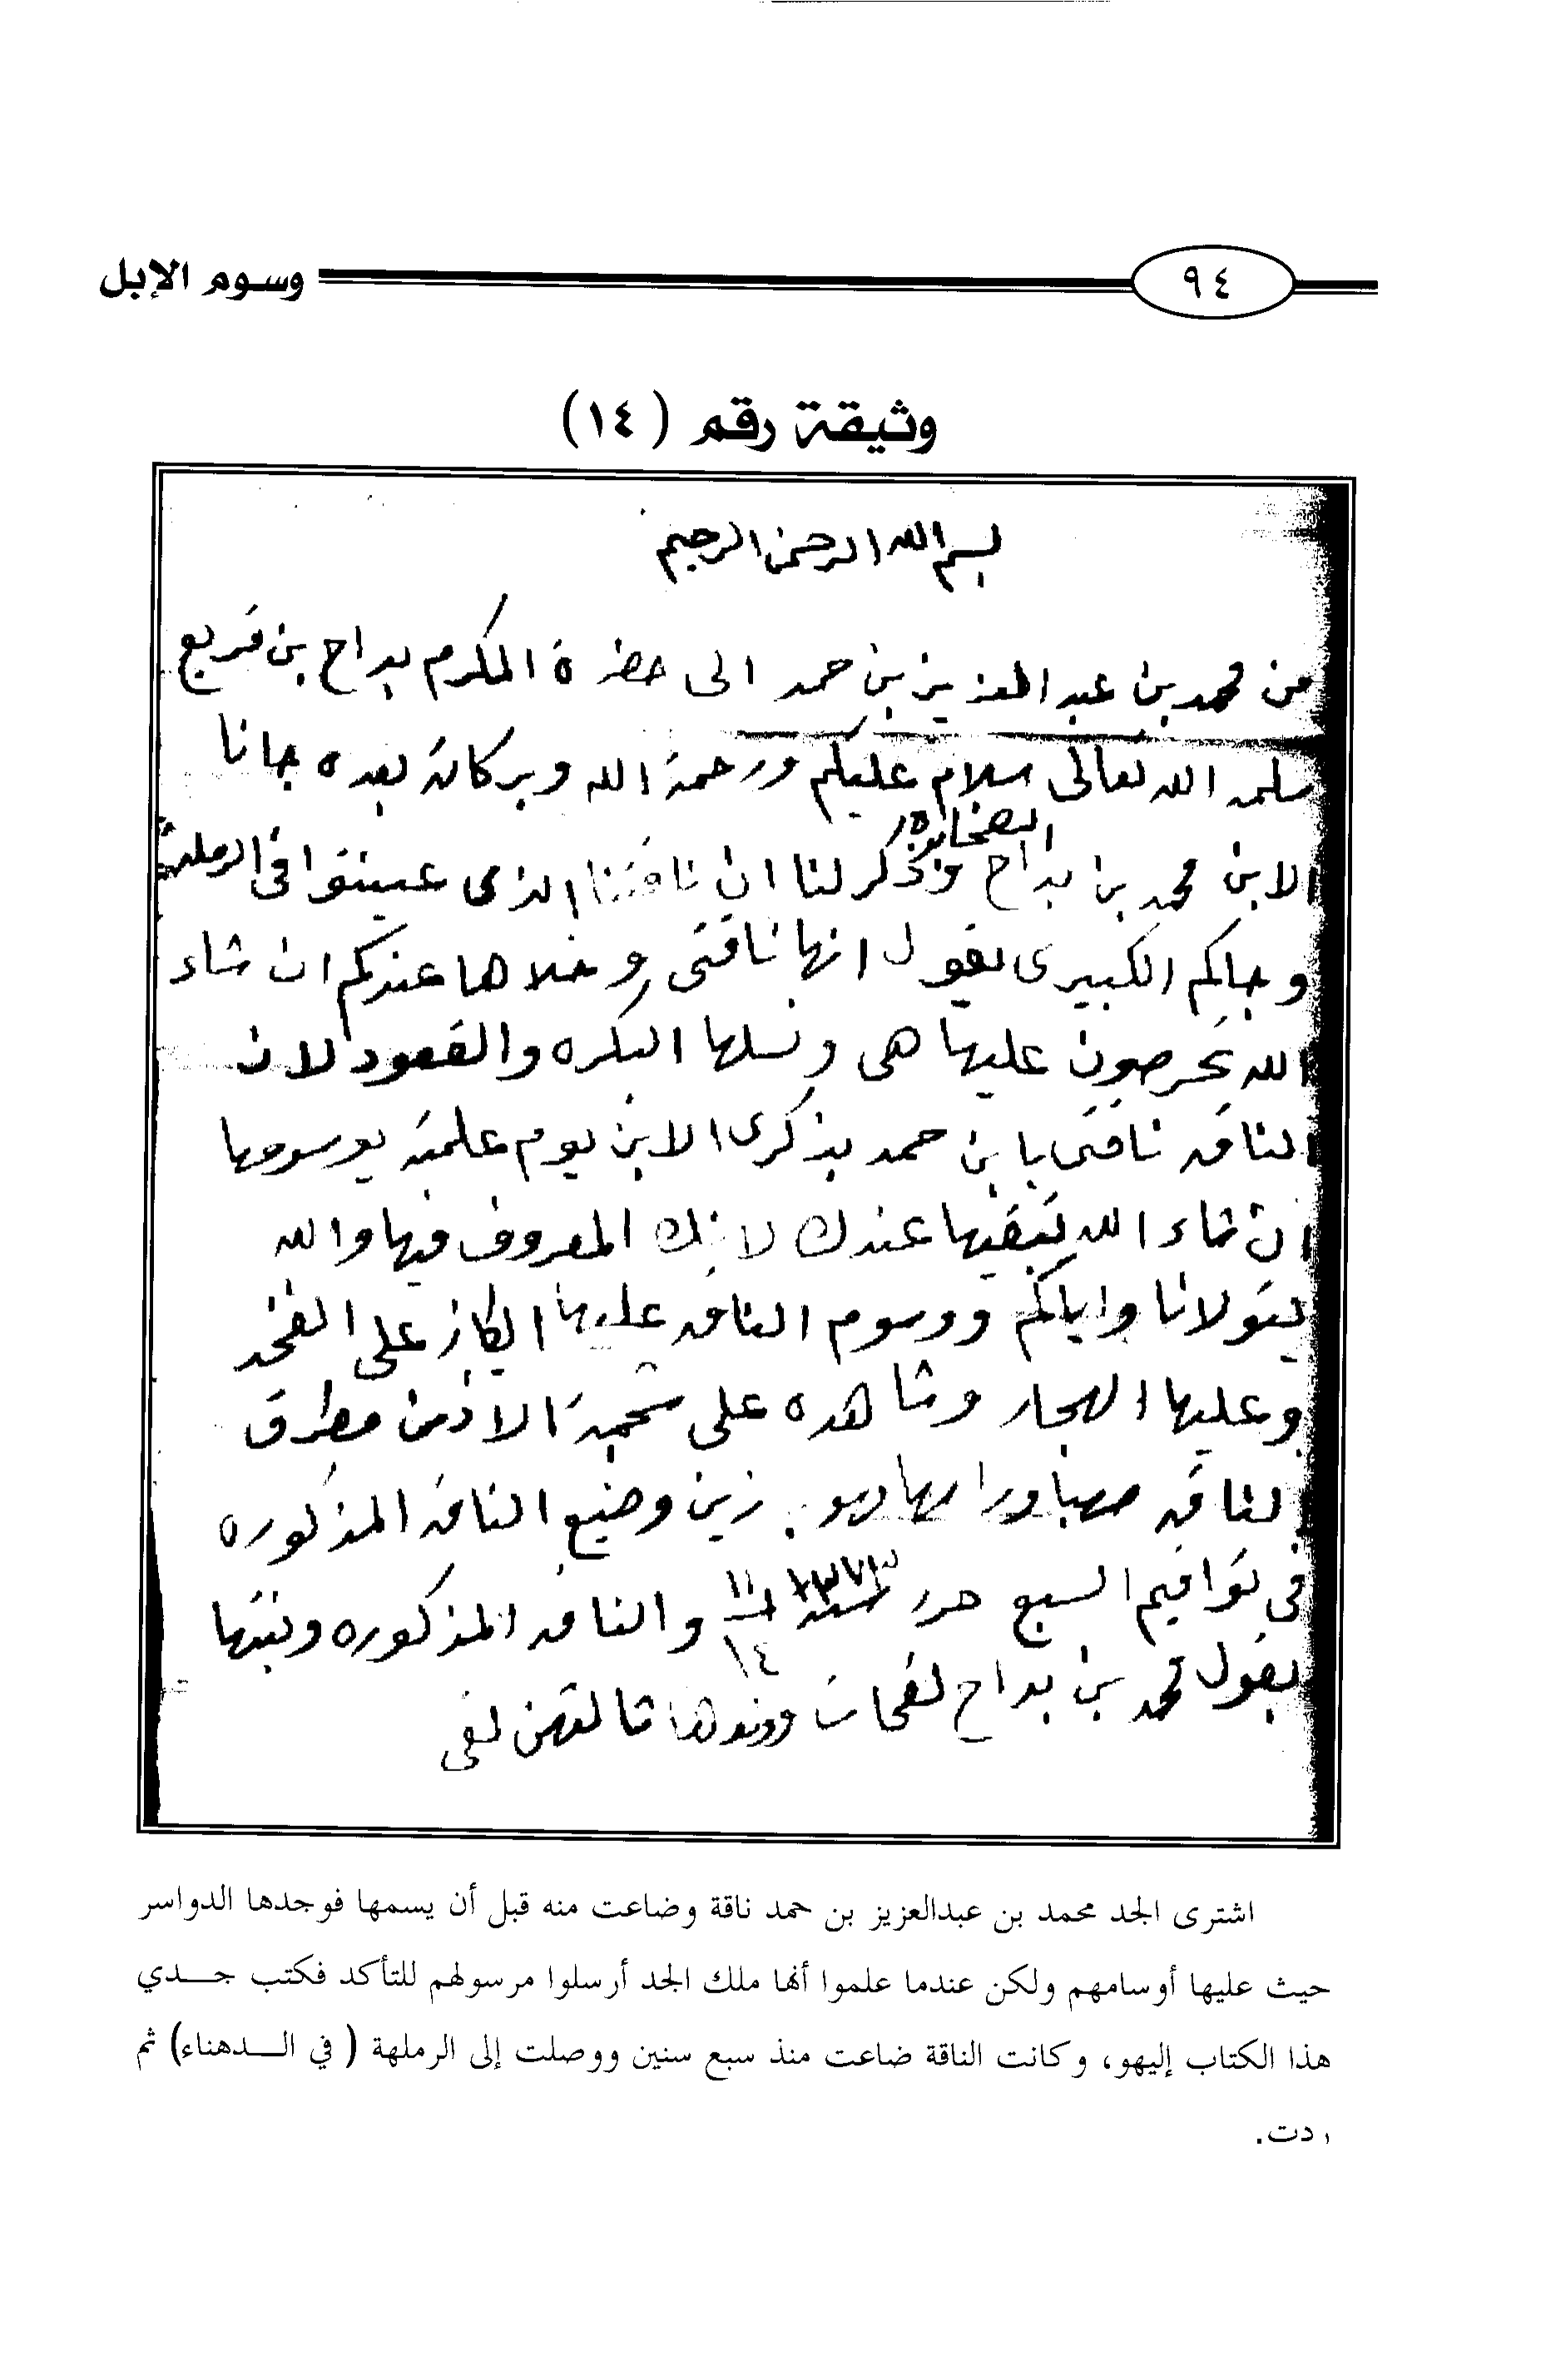 ٩٤
وسوم الإبل
وثيقة رقم (١٤)
بسم الله الرحمن الرحيم
من محمد بن عبد العزيز بن حمد الى حضرة المكرم بداح بن قريع
سلمه الله تعالى سلام عليكم ورحمة الله وبركاته بعده جانا
الابن محمد بن بداح وذكر لنا ان ناقتنا الذى عينتوا فى الرملهة
وجاكم الكبيرى يقول انها ناقتى وخلاها عندكم ان شاء
الله تحرصون عليها هى ونسلها البكره والقعود لان
الناقه ناقتى يا بن حمد بذكرى الابن يوم علمته بوسومها
ان شاء الله تبقيها عندك لانك المعروف فيها والله
يتولانا واياكم ووسوم الناقه عليها الكاز على الفخذ
وعليها الهجار وشاهده على شحمة الاذن مطرق
الناقه زين وضيع الناقه المذكوره
فى تواقيم السبع حرر ١٣٧٣ ١١ ١٤ والناقه المذكوره وبنتها
يقول محمد بن بداح لقحات
اشترى الجد محمد بن عبدالعزيز بن حمد ناقة وضاعت منه قبل أن يسمها فوجدها الدواسر
حيث عليها أوسامهم ولكن عندما علموا أنها ملك الجد أرسلوا مرسولهم للتأكد فكتب جـــدي
هذا الكتاب إليهو، وكانت الناقة ضاعت منذ سبع سنين ووصلت إلى الرملهة ( في الــدهناء) ثم
ردت.